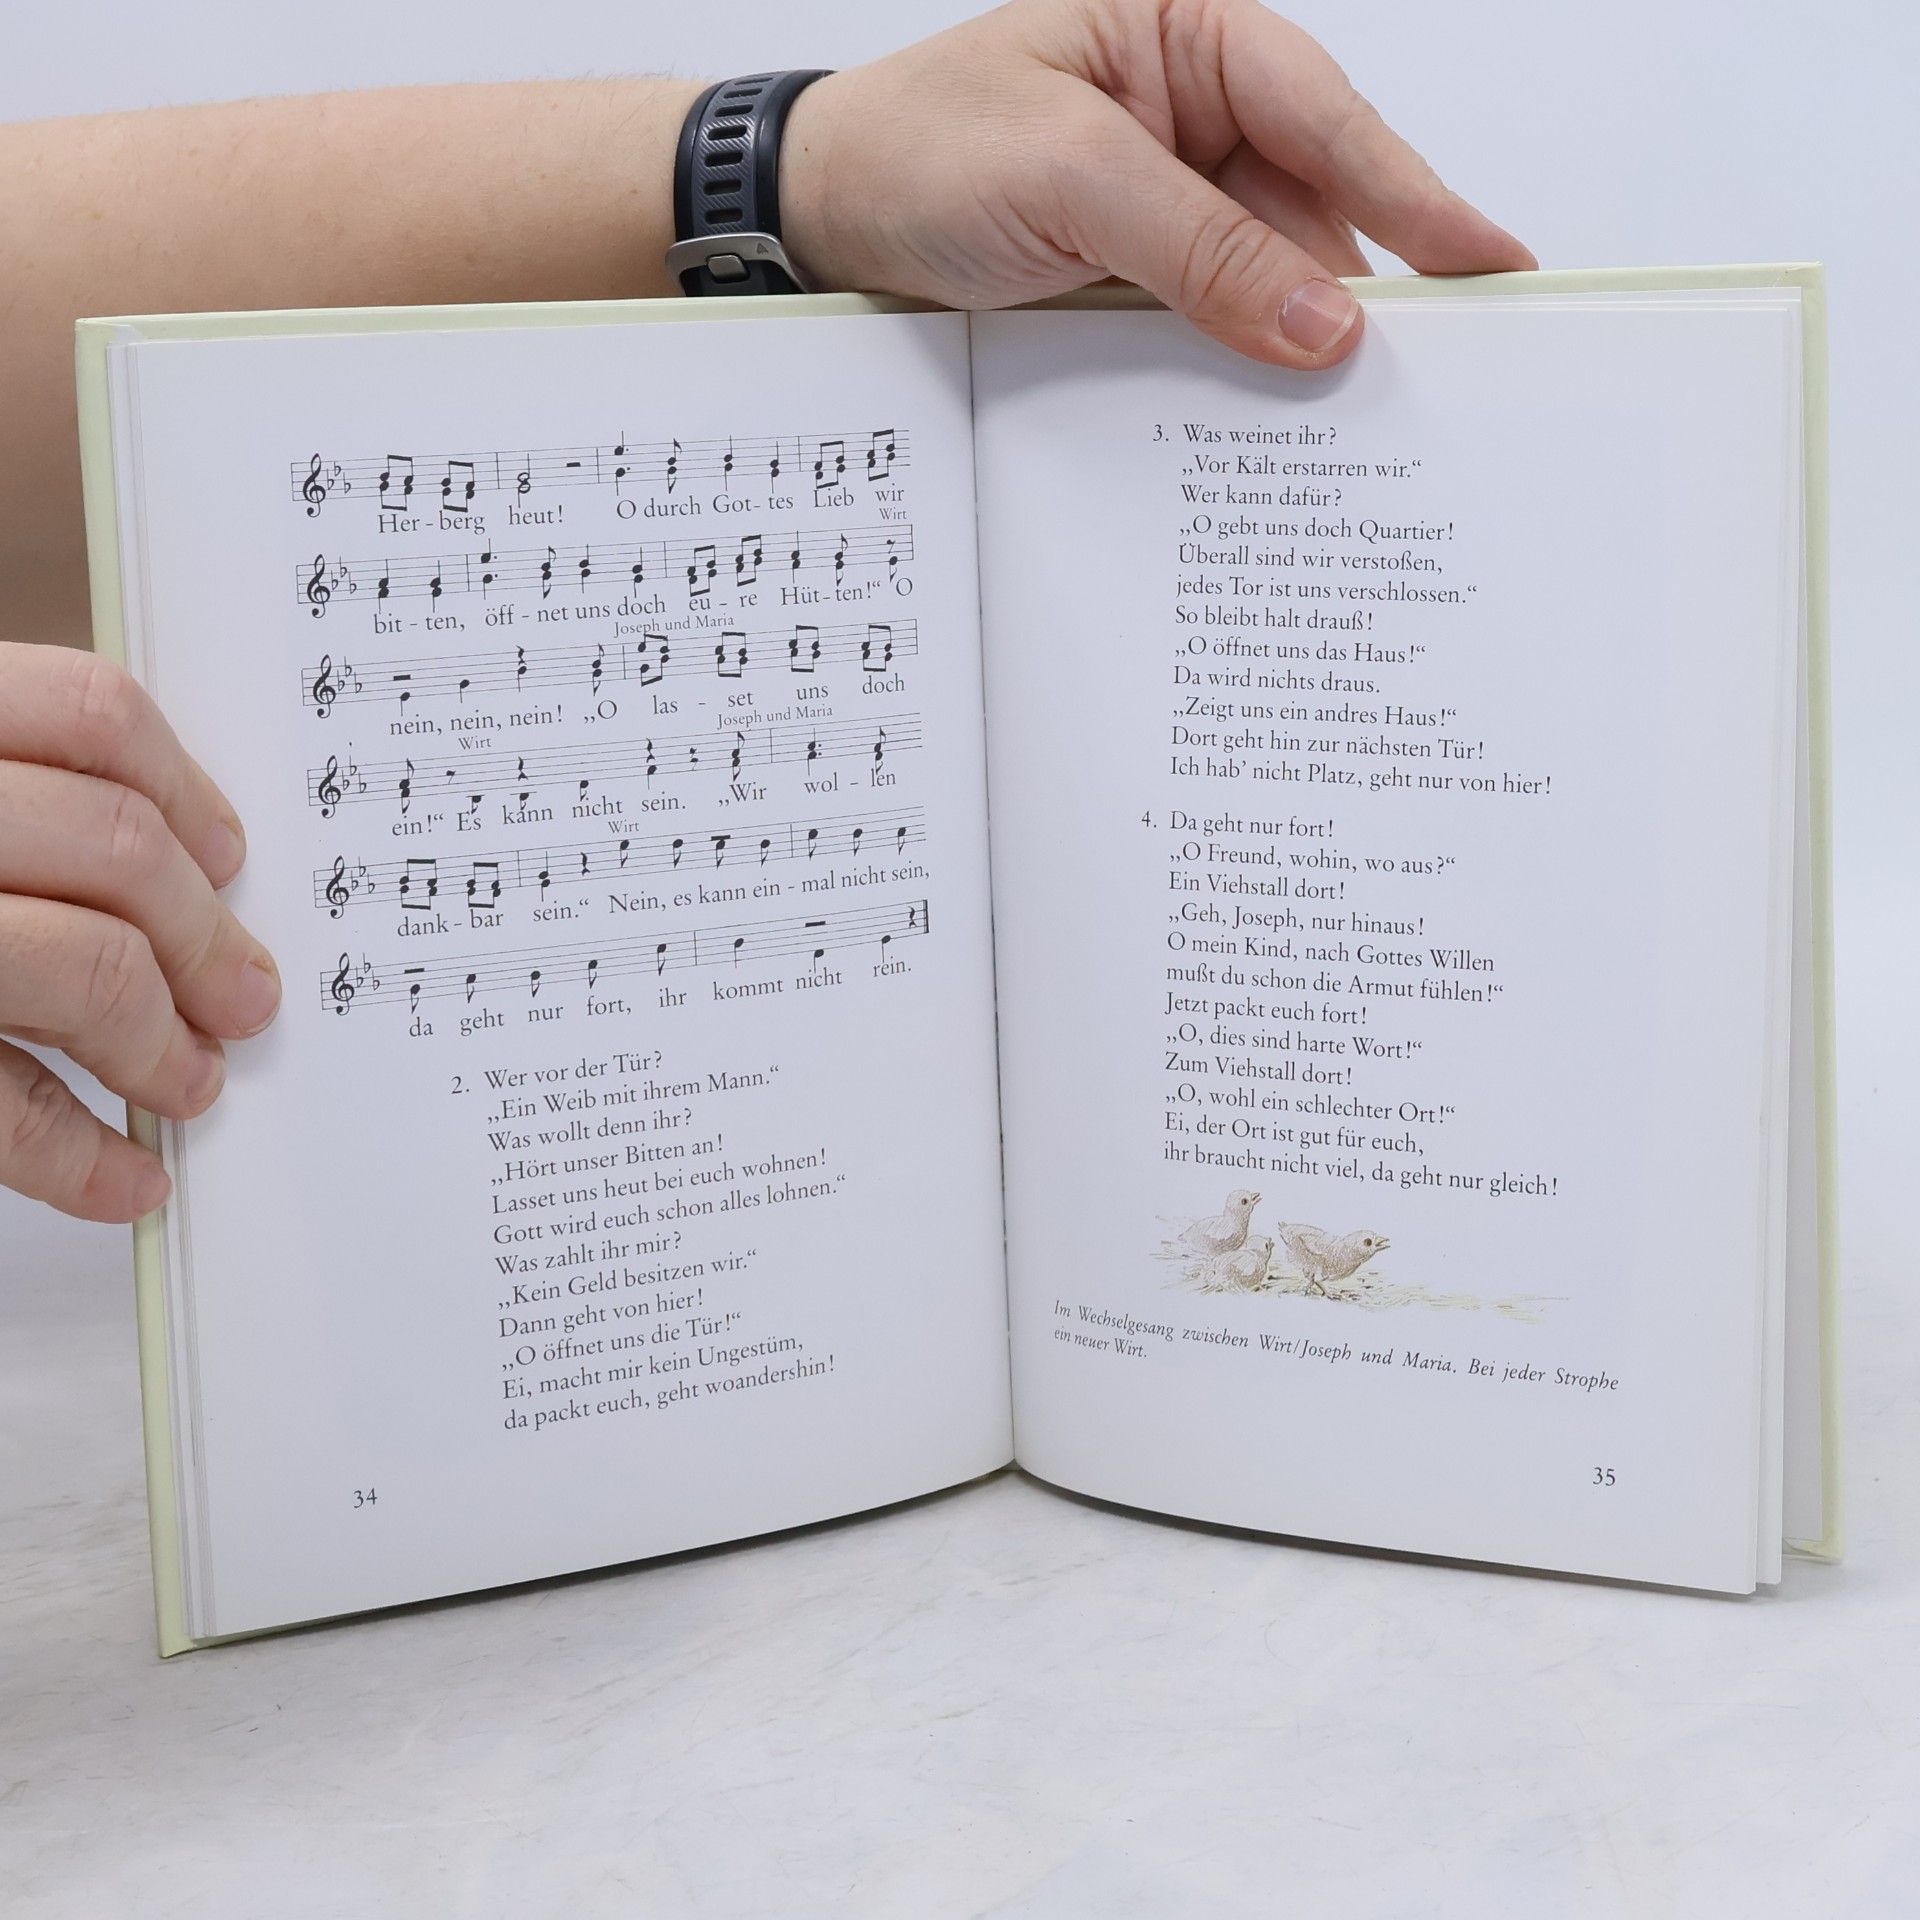 Her-berg heut! O durch Got-tes Lieb wir
Wirt
bit-ten, öff-net uns doch eu-re Hüt-ten!“ O
Joseph und Maria
nein, nein, nein! „O las-set uns doch
Wirt Joseph und Maria
ein!“ Es kann nicht sein. „Wir wol-len
Wirt
dank-bar sein.“ Nein, es kann ein-mal nicht sein,
da geht nur fort, ihr kommt nicht rein.
2. Wer vor der Tür?
„Ein Weib mit ihrem Mann.“
Was wollt denn ihr?
„Hört unser Bitten an!
Lasset uns heut bei euch wohnen!
Gott wird euch schon alles lohnen.“
Was zahlt ihr mir?
„Kein Geld besitzen wir.“
Dann geht von hier!
„O öffnet uns die Tür!“
Ei, macht mir kein Ungestüm,
da packt euch, geht woandershin!
34
3. Was weinet ihr?
„Vor Kält erstarren wir.“
Wer kann dafür?
„O gebt uns doch Quartier!
Überall sind wir verstoßen,
jedes Tor ist uns verschlossen.“
So bleibt halt drauß!
„O öffnet uns das Haus!“
Da wird nichts draus.
„Zeigt uns ein andres Haus!“
Dort geht hin zur nächsten Tür!
Ich hab’ nicht Platz, geht nur von hier!
4. Da geht nur fort!
„O Freund, wohin, wo aus?“
Ein Viehstall dort!
„Geh, Joseph, nur hinaus!
O mein Kind, nach Gottes Willen
mußt du schon die Armut fühlen!“
Jetzt packt euch fort!
„O, dies sind harte Wort!“
Zum Viehstall dort!
„O, wohl ein schlechter Ort!“
Ei, der Ort ist gut für euch,
ihr braucht nicht viel, da geht nur gleich!
Im Wechselgesang zwischen Wirt/Joseph und Maria. Bei jeder Strophe
ein neuer Wirt.
35